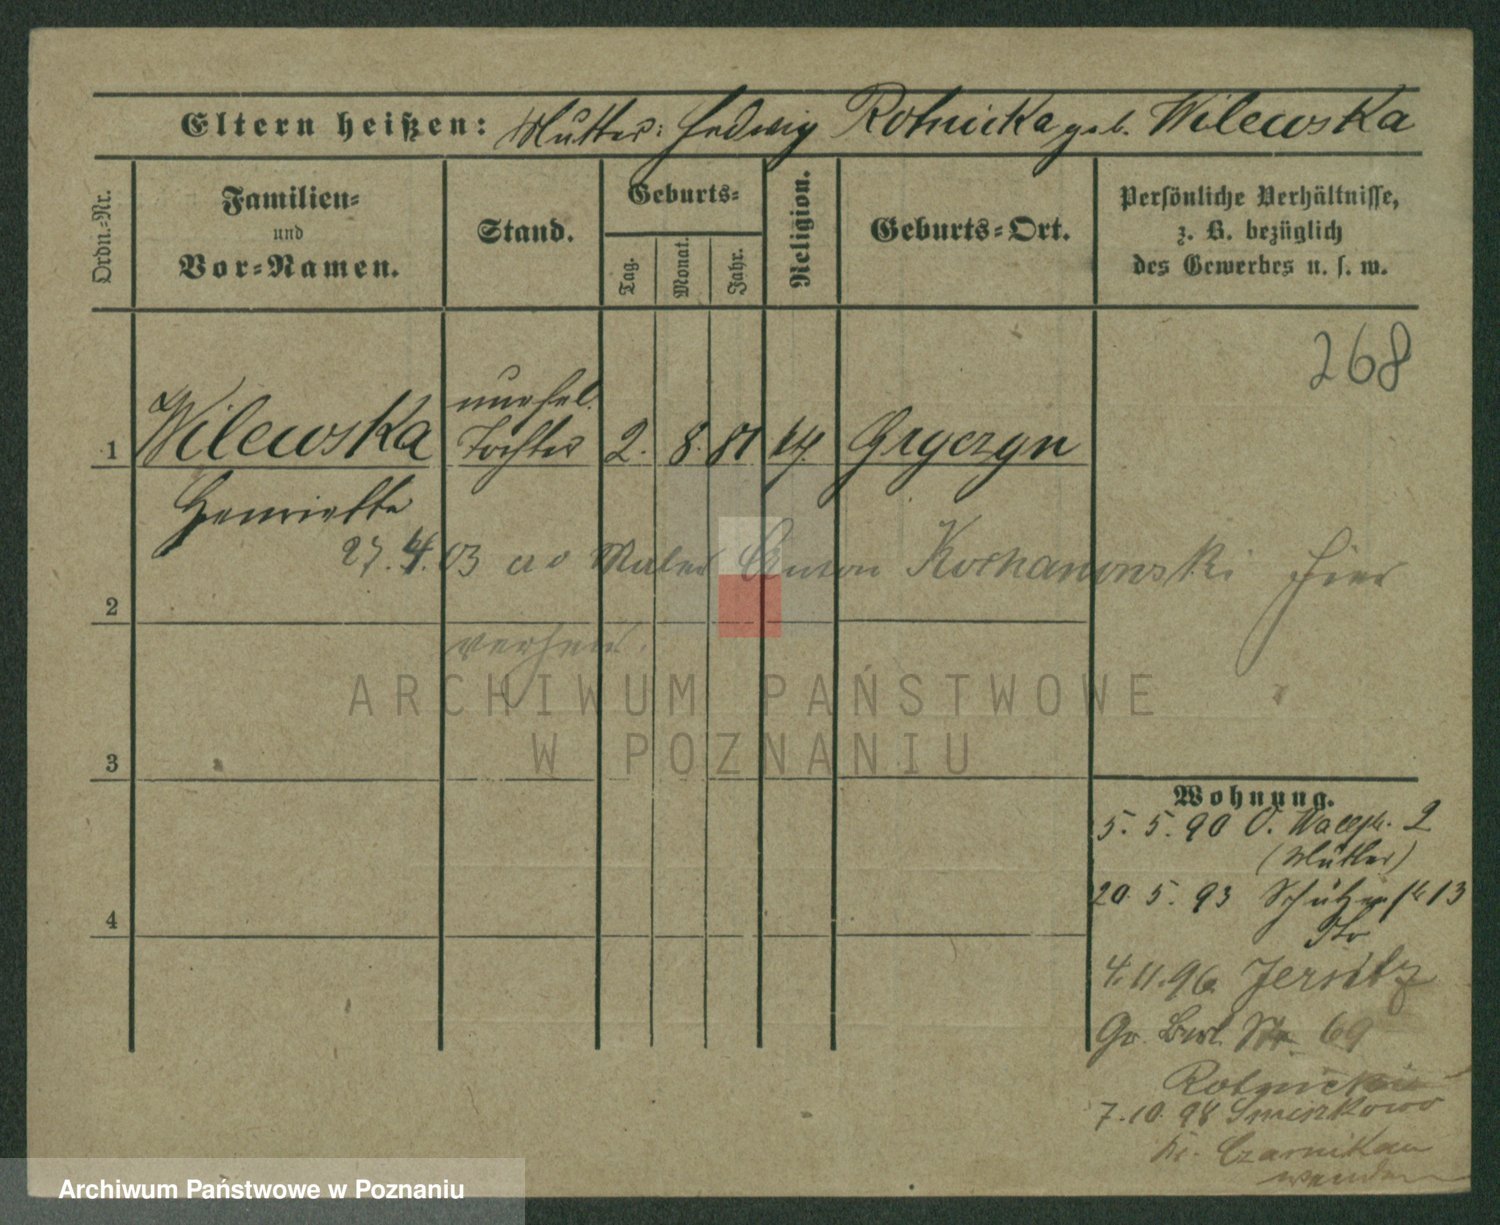 Eltern heißen: Mutter: Hedwig Rotnicka geb. Wilewska
Ordn.-Nr.
Familien-
und
Vor-Namen.
Stand.
Geburts-
Tag.
Monat.
Jahr.
Religion.
Geburts-Ort.
Persönliche Verhältnisse,
z. B. bezüglich
des Gewerbes u. s. w.
268
1 Wilewska unehel. Tochter 2. 8. 81 Gryczyn
Henriette
27.4.03 Maler Anton Kochanowski hier
2
verh.
ARCHIWUM PAŃSTWOWE
W POZNANIU
3
Wohnung.
5. 5. 90 O. 2
(Mutter)
20. 5. 93 Schützenstr 13
4
4.11.96 Jersitz
Gr. Berl. Str. 69
Rotnicki
7.10.98
Kr. Czarnikau
Archiwum Państwowe w Poznaniu